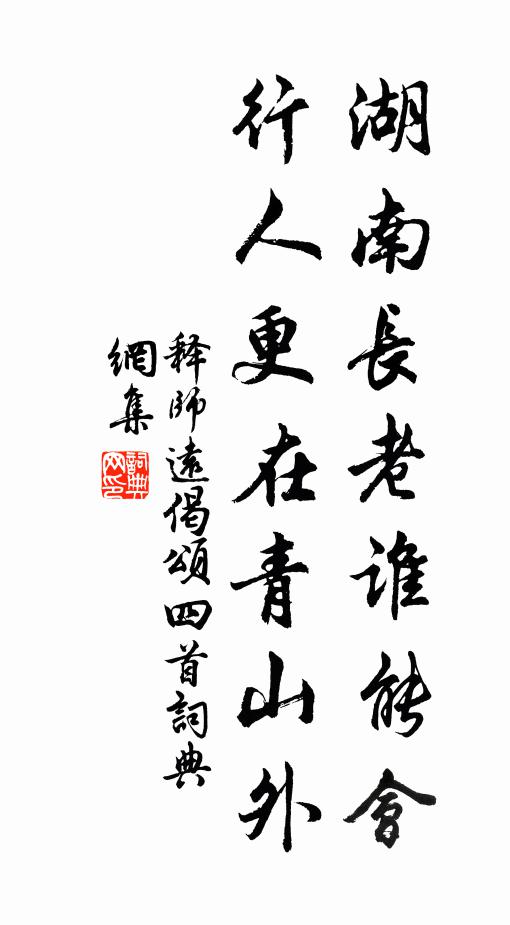 湖南長老誰能會
行人更在青山外
釋師遠偈頌四首詞典
網集
詞典網印